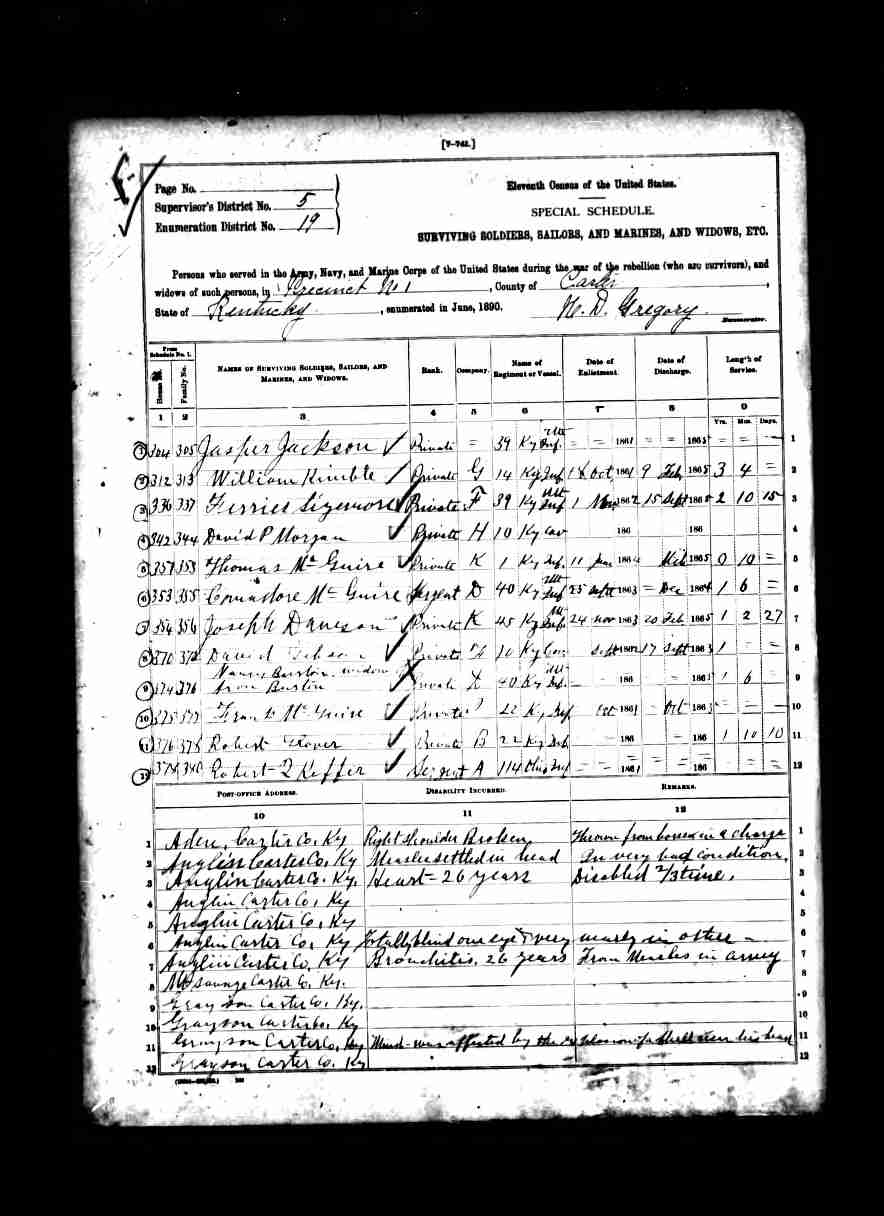 [7-743.]
Page No.
Supervisor's District No. 5
Enumeration District No. 19
Eleventh Census of the United States.
SPECIAL SCHEDULE.
SURVIVING SOLDIERS, SAILORS, AND MARINES, AND WIDOWS, ETC.
Persons who served in the Army, Navy, and Marine Corps of the United States during the war of the rebellion (who are survivors), and
widows of such persons, in Precinct No 1, County of Carter,
State of Kentucky, enumerated in June, 1890. H. D. Gregory. Enumerator.
From Schedule No. 1.
House No. Family No. NAMES OF SURVIVING SOLDIERS, SAILORS, AND MARINES, AND WIDOWS. Rank. Company. Name of Regiment or Vessel. Date of Enlistment. Date of Discharge. Length of Service.
1 2 3 4 5 6 7 8 9
Yrs. Mos. Days.
1 304 305 Jasper Jackson Private = 39 Ky Mtd Inf. = = 1861 = = 1865 = = — 1
2 312 313 William Kimble Private G 14 Ky Inf 18 Oct 1861 9 Feb 1865 3 4 = 2
3 336 337 Ferries Sizemore Private F 39 Ky Mtd Inf 1 Nov 1862 15 Sept 186 2 10 15 3
4 342 344 David P Morgan Private H 10 Ky Cav 186 186 4
5 357 353 Thomas Mc Guire Private K 1 Ky Inf. 11 1864 1865 0 10 = 5
6 353 355 Commodore Mc Guire Sergent D 40 Ky Mtd Inf 25 Sept 1863 = Dec 1864 1 6 = 6
7 354 356 Joseph Daveson Private K 45 Ky Mtd Inf. 24 Nov 1863 20 Feb 1865 1 2 27 7
8 370 372 David Private 10 Ky Cav Sept 1862 17 Sept 1863 1 = = 8
Nancy Burton widow
9 374 376 from Burton Private D 40 Ky Mtd Inf. — 186 — 186 1 6 = 9
10 375 377 Mc Guire Private 22 Ky Inf Oct 1861 — Oct 186 = — — 10
11 376 378 Robert Private B 22 Ky Inf — 186 — 186 1 10 10 11
12 378 380 Robert Keffer Sergent A 114 Ohio Inf = = 1861 = = 186 = = 12
POST-OFFICE ADDRESS. DISABILITY INCURRED. REMARKS.
10 11 12
1 Aden, Carter Co, Ky Right shoulder Broken Thrown from horse in a charge 1
2 Anglin Carter Co, Ky Measles settled in head In very bad condition, 2
3 Anglin Carter Co. Ky. Heart — 26 years Disabled 2/3 time. 3
4 Anglin Carter Co, Ky 4
5 Anglin Carter Co, Ky 5
6 Anglin Carter Co, Ky Totally blind one eye & very nearly in other — 6
7 Anglin Carter Co, Ky Bronchitis, 26 years From Measles in army 7
8 Mt savage Carter Co, Ky. 8
9 Grayson Carter Co, Ky. 9
10 Grayson Carter Co. Ky 10
11 Grayson Carter Co, Ky Mind was affected by the explosion of a shell near his head 11
12 Grayson Carter Co. Ky 12